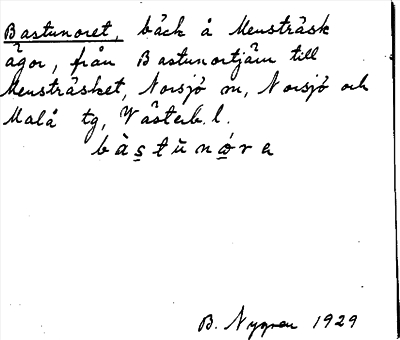 Bastunoret, bäck å Mensträsk
ägor, från Bastunortjärn till
Mensträsket, Norsjö sn, Norsjö och
Malå tg, Västerb. l.
bàstŭnørɐ
B. Nygren 1929